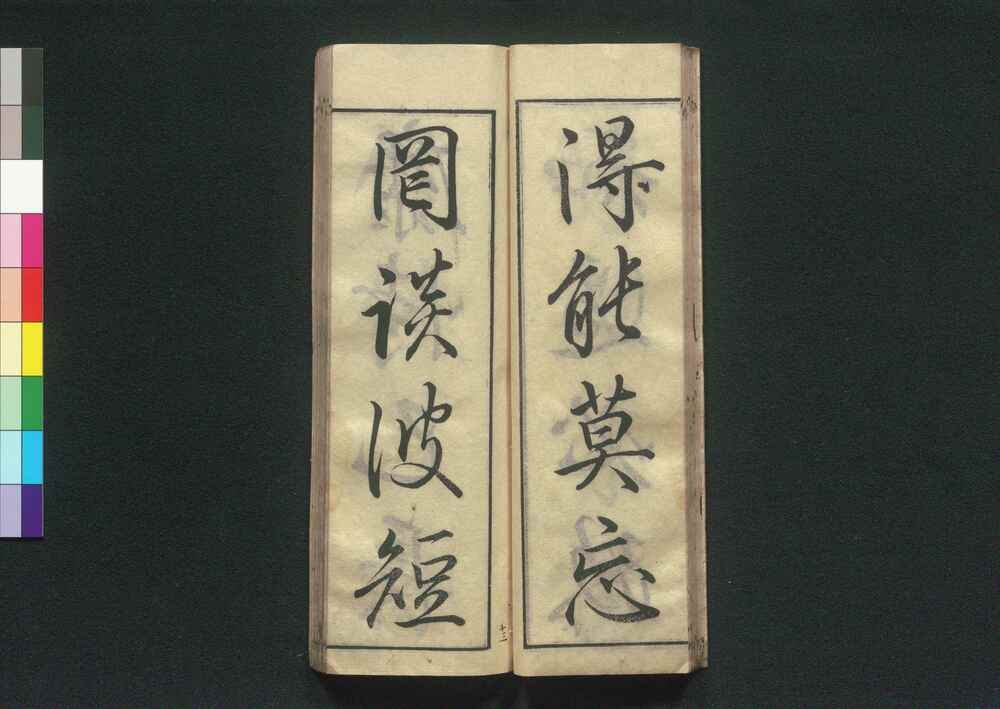 得能莫忘
罔談彼短
十三